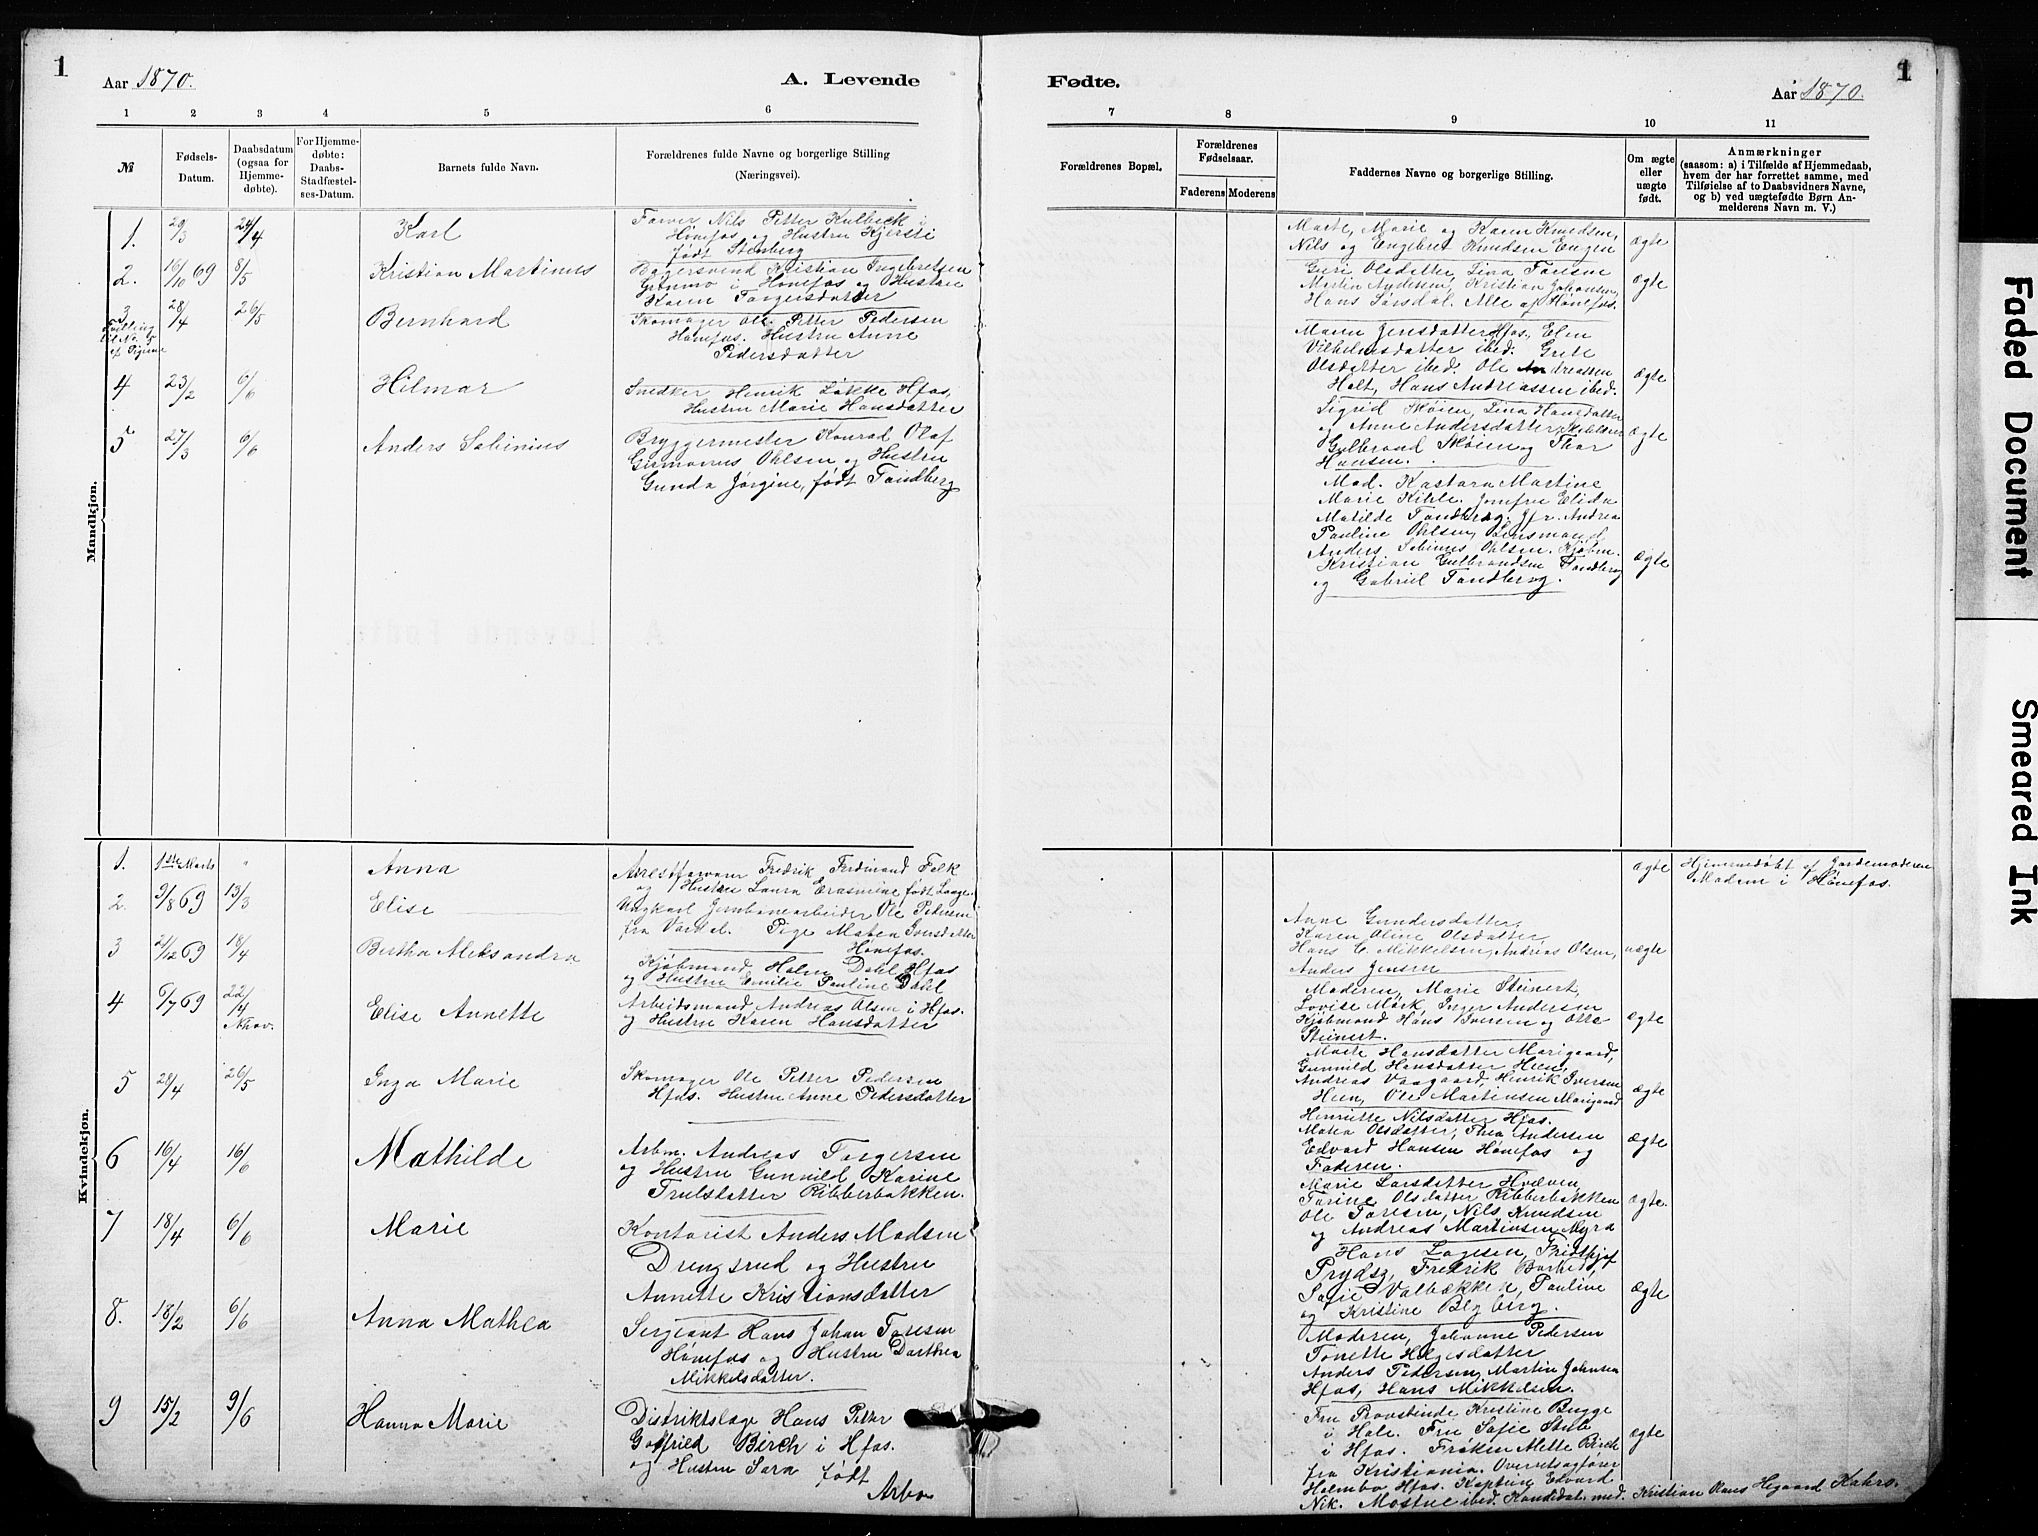 1
Aar 1870.
A. Levende
1 2 3 4 5 6
№
Fødsels-
Datum.
Daabsdatum
(ogsaa for
Hjemme-
døbte).
For Hjemme-
døbte:
Daabs-
Stadfæstel-
ses-Datum.
Barnets fulde Navn.
Forældrenes fulde Navne og borgerlige Stilling
(Næringsvei).
Mandkjøn.
1. 29/3 24/4 Karl
Farver Nils Petter Kulbeck i
Hønefos og Hustru Kjersti
født Stenberg
2. 16/10 69 8/5 Kristian Martinus
Bagersvend Kristian Ingebretsen
Grønmo i Hønefos og Hustru
Karen Torgersdatter
3 28/4 26/5 Bernhard
Tvilling
til No. 5
af Pigerne
Skomager Ole Petter Pedersen
Hønefos. Hustru Anne
Pedersdatter
4 23/2 6/6 Hilmar
Snedker Henrik Løkke Hfos,
Hustru Marie Hansdatter
5 27/3 6/6 Anders Sabinius
Bryggermester Konrad Olaf
Germanus Ohlsen og Hustru
Gunda Jørgine, født Tandberg
Kvindekjøn.
1. 1ste Marts " Anna
Arrestforvarer Fredrik Ferdinand Falk
og Hustru Laura Erasmine født Lange.
2. 9/8 69 13/3 Elise
Ungkarl Jernbanearbeider Ole Pedersen
fra Vardal. Pige Maten Iversdatter
Hønefos.
3 21/12 69 18/4 Bertha Aleksandra
Kjøbmand Halvor Dahl Hfos
og Hustru Emilie Pauline Dahl
4 6/7 69 22/4 Elise Annette
Arbeidsmand Andreas Olsen i Hfos.
og Hustru Karen Hansdatter
5 28/4 26/5 Inga Marie
Skomager Ole Petter Pedersen
Hfos. Hustru Anne Pedersdatter
6 16/4 16/6 Mathilde
Arbm. Andreas Torgersen
og Hustru Gunnild Karine
Trulsdatter Ribberbakken.
7 18/4 6/6 Marie
Kontorist Anders Madsen
Drengsrud og Hustru
Annette Kristiansdatter
8. 18/2 6/6 Anna Mathea
Sergeant Hans Johan Toresen
Hønefos og Hustru Dorthea
Mikkelsdatter.
9 15/2 9/6 Hanna Marie
Distriktslæge Hans Petter
Gotfried Birch i Hfos.
og Hustru Sara født
Arbo
Fødte.
1
Aar 1870.
7 8 9 10 11
Forældrenes Bopæl.
Forældrenes
Fødselsaar.
Faderens Moderens
Faddernes Navne og borgerlige Stilling.
Om ægte
eller
uægte
født.
Anmærkninger
(saasom: a) i Tilfælde af Hjemmedaab,
hvem der har forrettet samme, med
Tilføielse af to Daabsvidners Navne,
og b) ved uægtefødte Børn An-
melderens Navn m. V.)
Marte, Marie og Karen Knudsen,
Nils og Engebret Knudsen Engen ægte
Guri Olsdatter, Lina Toresen
Martin Andersen, Kristian Johansen, ægte
Hans Sørsdal. Alle af Hønefos.
Maren Jensdatter Hfos, Elen
Vilhelmsdatter ibed. Grete
Olsdatter ibed. Ole Andreassen
Holt, Hans Andreassen ibed. ægte
Sigrid Skøien, Lina Hansdatter
og Anne Andersdatter
Gulbrand Skøien og Thor ægte
Hansen.
Mad. Kastara Martine
Marie Kihle. Jomfru Elida
Matilde Tandberg. Jfr. Andrea
Pauline Ohlsen, Lensmand
Anders Sabinus Ohlsen. Kjøbm.
Kristian Gulbrandsen Tandberg ægte
og Gabriel Tandberg.
ægte
Hjemmedøbt af Jordemoderen
Madem i Hønefos.
Anne Gundersdatter,
Karen Oline Olsdatter
Hans C. Mikkelsen, Andreas Olsen, uægte
Anders Jensen
Moderen, Marie Steinert,
Lovise Mørk, Inger Andersen
Kjøbmand Hans Iversen og Otto ægte
Steinert.
Marte Hansdatter Marigaard,
Gunnild Hansdatter Heen,
Andreas Vaagaard, Henrik Iversen
Heen, Ole Martensen Marigaard ægte
Henriette Nilsdatter Hfos.
Maria Olsdatter, Thea Andersen
Edvard Hansen Hønefos og ægte
Faderen.
Marie Larsdatter Hvalven,
Torine Olsdatter Ribberbakken
Ole Toresen, Nils Knudsen ægte.
og Andreas Martinsen Myra
Hans Lagesen, Fridthjof
Prydsg, Fredrik
Sofie Valbækken, Pauline ægte
og Kristine Blyberg.
Moderen, Johanne Pedersen
Tonette Helgesdatter
Anders Pedersen, Martin Johnsen
Hfos, Hans Mikkelsen.
Fru Provstinde Kristine Bugge
i Hole. Fru Sofie Stub
i Hfos. Frøken Mette Birch ægte
fra Kristiania. Overretssagfører
Holmbo Hfos. Kaptein Edvard
Nik. Mostue ibed. Kandidat med. Kristian Hans Hegaard Kahrs.
Faded Document
Smeared Ink